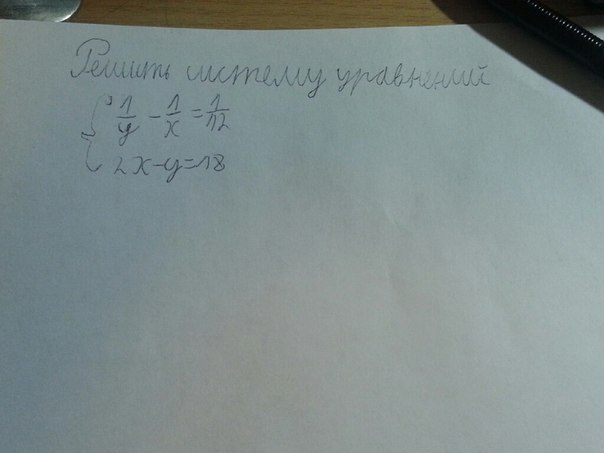 Решить систему уравнений
1/y - 1/x = 1/12
2x-y=18